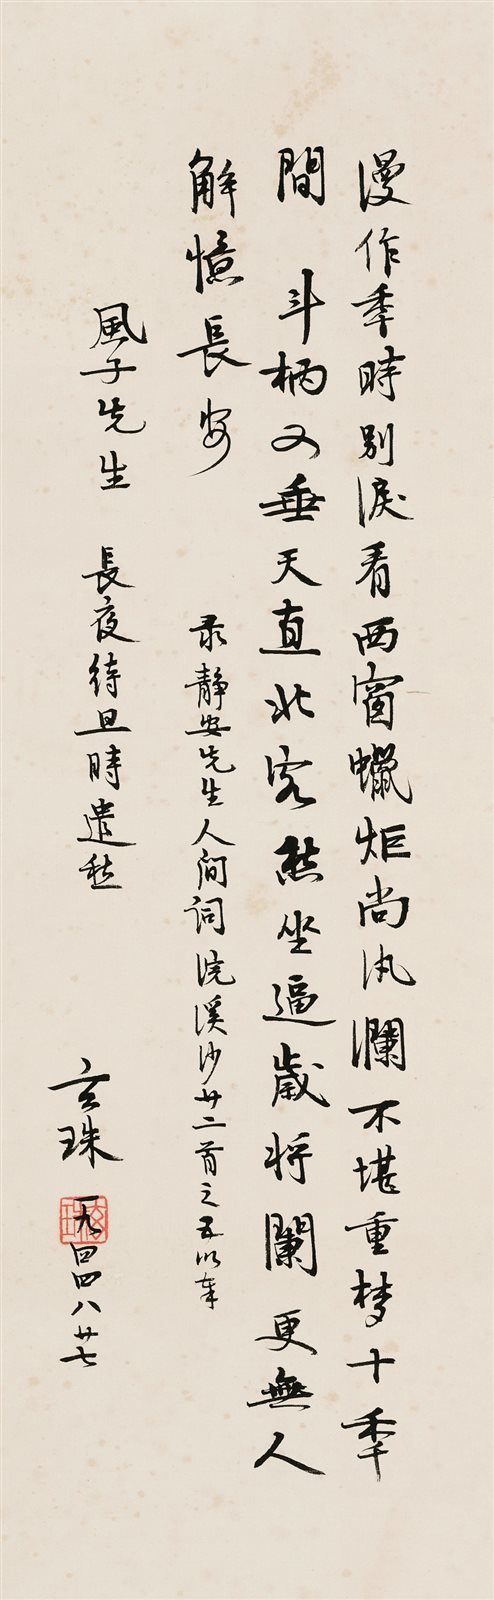 漫作秊時別淚看西窗蠟炬尚汍瀾不堪重梦十秊
間 斗柄又垂天直北客愁坐逼歲將闌更無人
解憶長安
录静安先生人间词浣溪沙廿二首之五以奉
風子先生 長夜待旦時遣愁
玄珠 一九四四八廿七